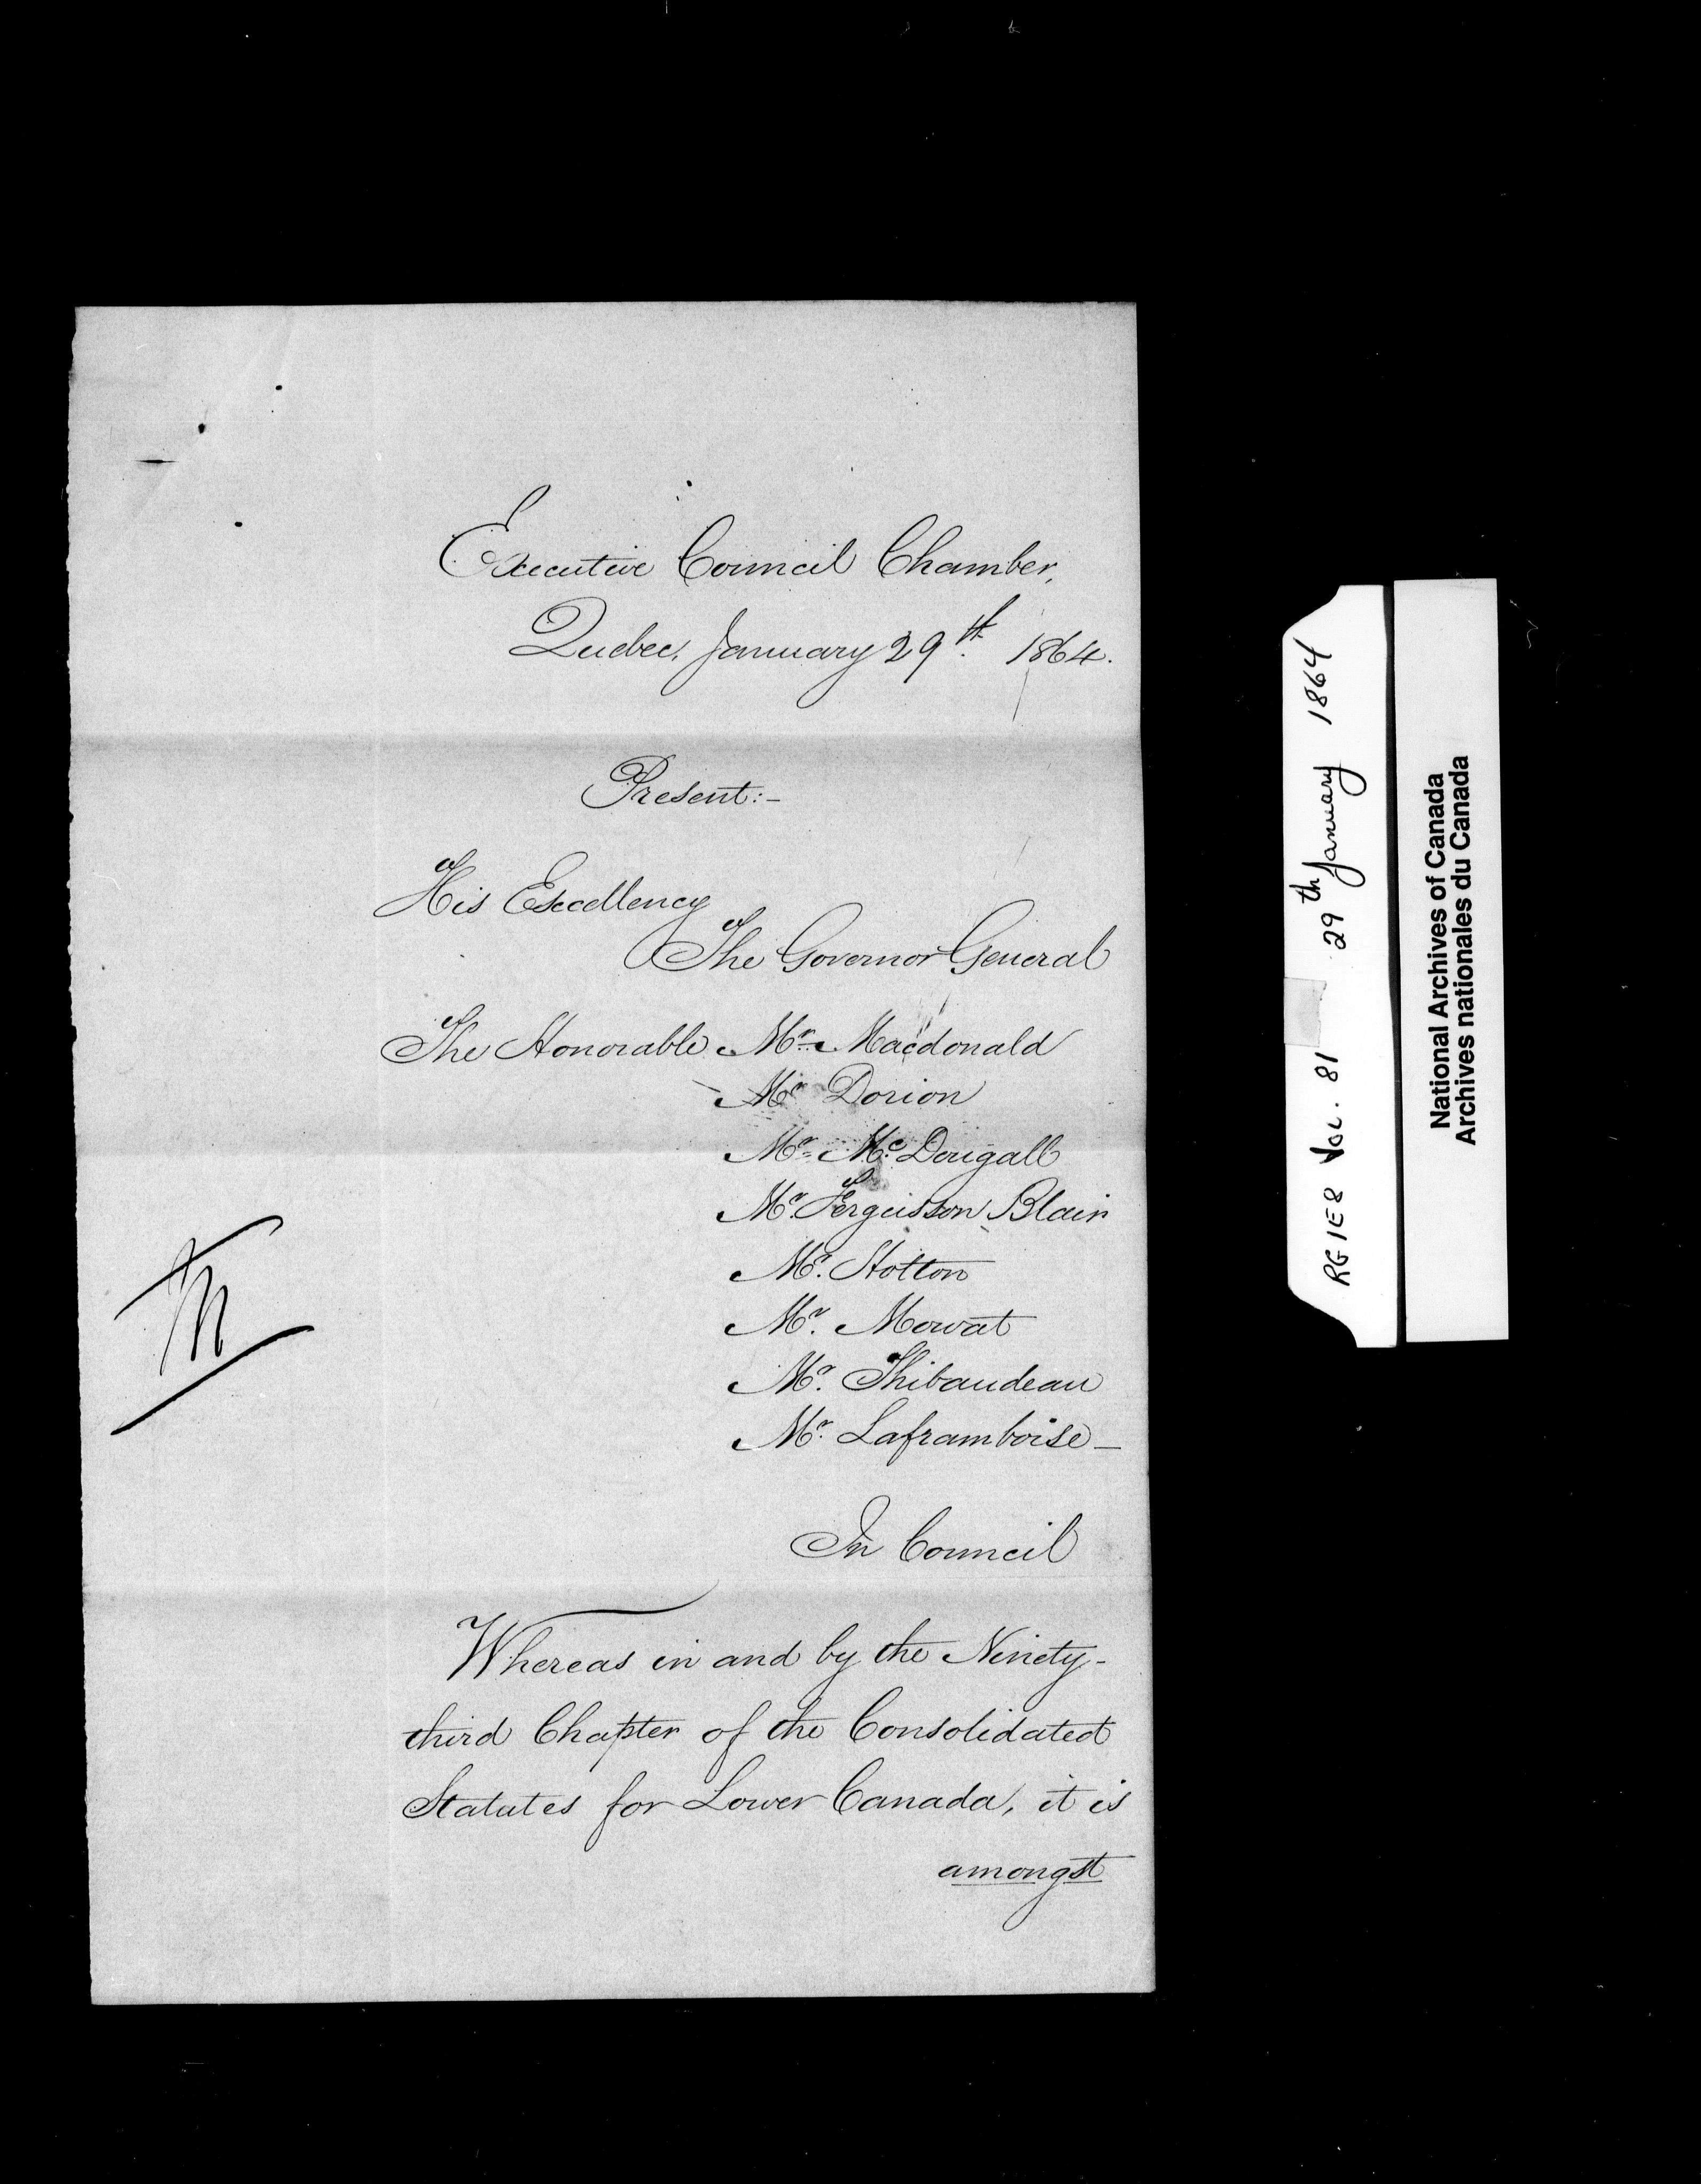 Executive Council Chamber,
Quebec, January 29th. 1864.
Present:-
His Excellency
The Governor General
The Honorable Mr. Macdonald
Mr. Dorion
Mr. McDougall
Mr. Fergusson Blair
Mr. Holton
Mr. Mowat
Mr. Thibaudeau
Mr. Laframboise-
In Council
Whereas in and by the Ninety-
third Chapter of the Consolidated
Statutes for Lower Canada, it is
amongst
RG1E8 Vol. 81 29th January 1864
National Archives of Canada
Archives nationales du Canada